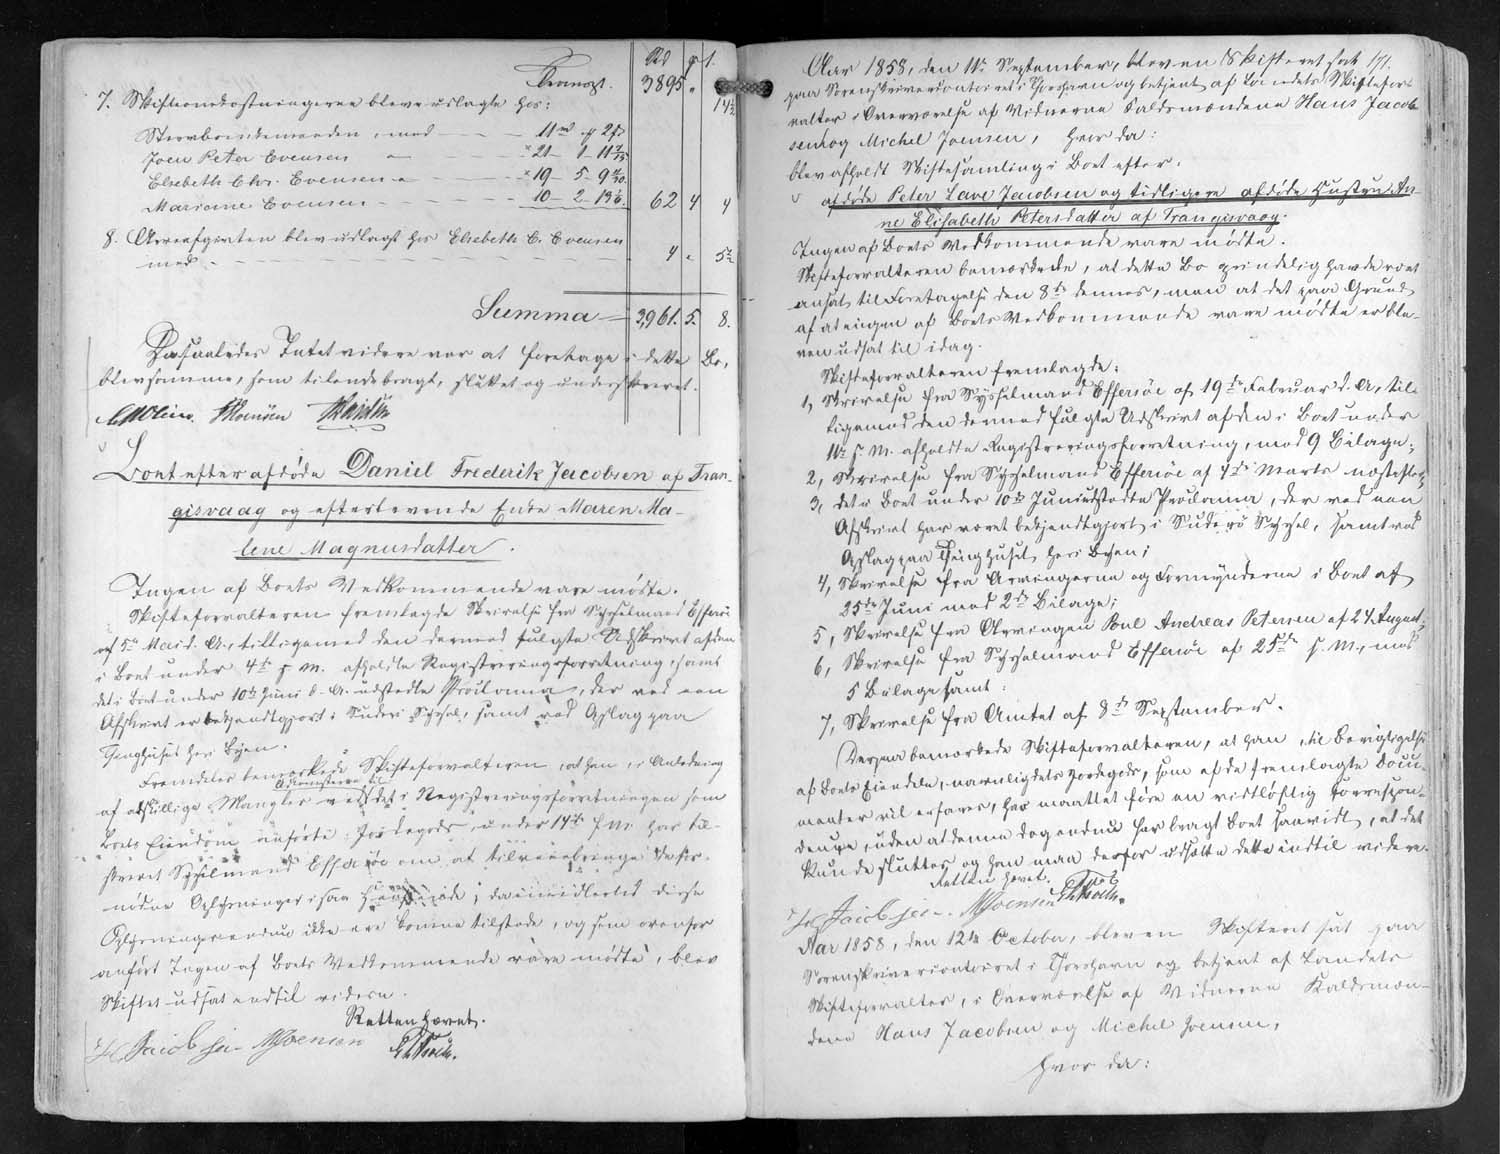 Rd ß.
Transp. 3895 " 14½
7. Skifteomkostningerne bleve udlagte hos:
Stervboenkemanden, med — 11 rd 4 ß 2
Joen Peter Evensen — 21 - 1 - 11
Elsebeth Chr. Evensen — 19 - 5 - 9
Marianne Evensen — 10 - 2 - 13 62 4 4
8. Arveafgivten blev udlagt hos Elsebeth C. Evensen
med — 4 " 5½
Summa = 3,961. 5. 8.
Da saaledes Intet videre var at foretage i dette Bo,
blev samme, som tilendebragt, sluttet og underskrevet.
Boet efter afdøde Daniel Frederik Jacobsen af Tran-
gisvaag og efterlevende Enke Maren Ma-
lene Magnusdatter.
Ingen af Boets Vedkommende vare mødte.
Skifteforvalteren fremlagde Skrivelse fra Sysselmand Effersøe
af 5te Mai d. A., tilligemed den dermed fulgte Udskrivt af den
i Boet under 4de f. M. afholdte Registreringsforretning, samt
det i Boet under 10de Juni d. A. udstedte Proclama, der ved een
Afskrivt er bekjendtgjort i Suderø Syssel, samt ved Opslag paa
Tinghuset her i Byen.
Fremdeles bemærkede Skifteforvalteren, at han, i Anledning
af adskillige Mangler ved det i Registreringsforretningen som
Boets Eiendom anførte Jordegods, under 14de f. M. har til-
skrevet Sysselmand Effersøe om, at tilveiebringe de for-
nødne Oplysninger i saa Henseende; da imidlertid disse
Oplysninger endnu ikke ere komne tilstede, og som ovenfor
anført Ingen af Boets Vedkommende vare mødte, blev
Skiftet udsat indtil videre.
Retten hævet.
H. Jacobsen MJoensen
171.
Aar 1858, den 11te September, blev en Skifteret sat
paa Sorenskrivercontoiret i Thorshavn og betjent af Landets Skiftefor-
valter i Overværelse af Vidnerne Kaldsmændene Hans Jacob-
sen og Michel Joensen, hvor da:
blev afholdt Skiftesamling i Boet efter
afdøde Peter Lave Jacobsen og tidligere afdøde Hustru An-
ne Elisabeth Petersdatter af Trangisvaag.
Ingen af Boets Vedkommende vare mødte.
Skifteforvalteren bemærkede, at dette Bo oprindelig havde været
ansat til Foretagelse den 8de dennes, men at det paa Grund
af at ingen af Boets Vedkommende vare mødte er ble-
ven udsat til idag.
Skifteforvalteren fremlagde:
1, Skrivelse fra Sysselmand Effersøe af 19de Februar d. A., til-
ligemed den dermed fulgte Udskrivt af den i Boet under
11te f. M. afholdte Registreringsforretning, med 9 Bilage;
2, Skrivelse fra Sysselmand Effersøe af 4de Marts næstefter;
3, det i Boet under 10de Juni udstedte Proclama, der ved een
Afskrivt har været bekjendtgjort i Suderø Syssel, samt ved
Opslag paa Tinghuset her i Byen;
4, Skrivelse fra Arvingerne og Formynderne i Boet af
25de Juni med 2de Bilage;
5, Skrivelse fra Arvingen Poul Andreas Petersen af 24 August;
6, Skrivelse fra Sysselmand Effersøe af 25de f. M., med
5 Bilage samt:
7, Skrivelse fra Amtet af 8de September.
Derpaa bemærkede Skifteforvalteren, at han, til Berigtigelse
af Boets Eiendele, navnlig dets Jordegods, som af de fremlagte Docu-
menter vil erfares, har maattet føre en vidtløftig Correspon-
dence, uden at denne dog endnu har bragt Boet saavidt, at det
kunde sluttes og han maa derfor udsætte dette indtil videre.
Retten hævet.
H. Jacobsen MJoensen
Aar 1858, den 12te October, blev en Skifteret sat paa
Sorenskrivercontoiret i Thorshavn og betjent af Landets
Skifteforvalter, i Overværelse af Vidnerne Kaldsmæn-
dene Hans Jacobsen og Michel Joensen,
hvor da: